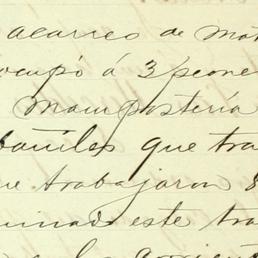 acarreo de Mat
ocupó á 3 peone
Mampostería
bañiles que tra
ue trabajaron 8
minado este tra